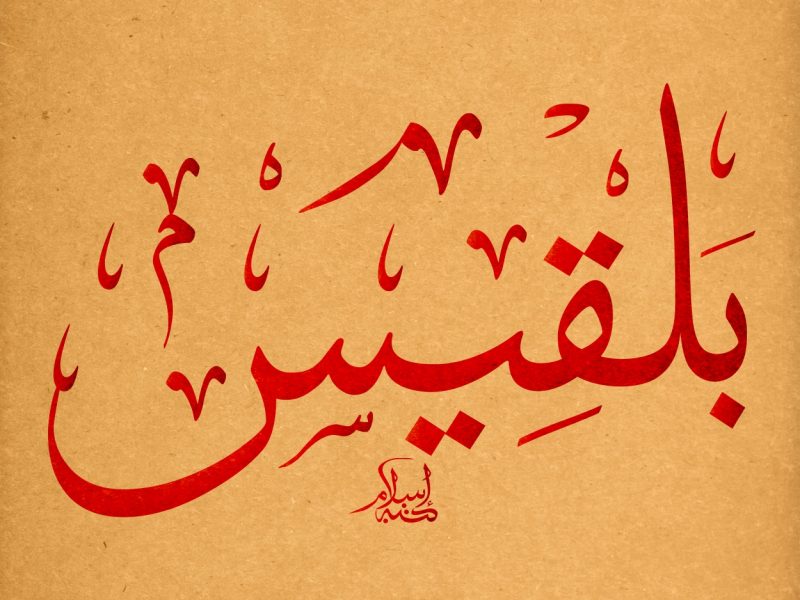 بَلْقِيس
كتبه إسلام